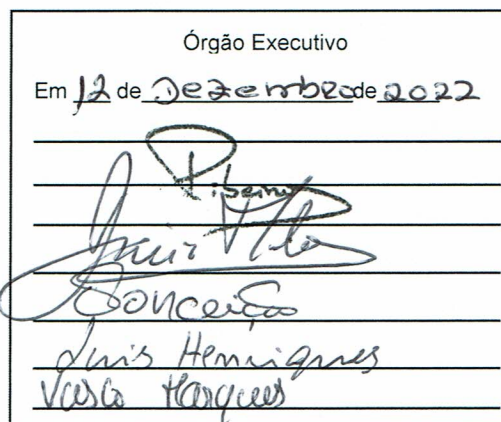 Órgão Executivo
Em 12 de Dezembro de 2022
Ribeiro
Conceição
Luis Henriques
Vasco Marques